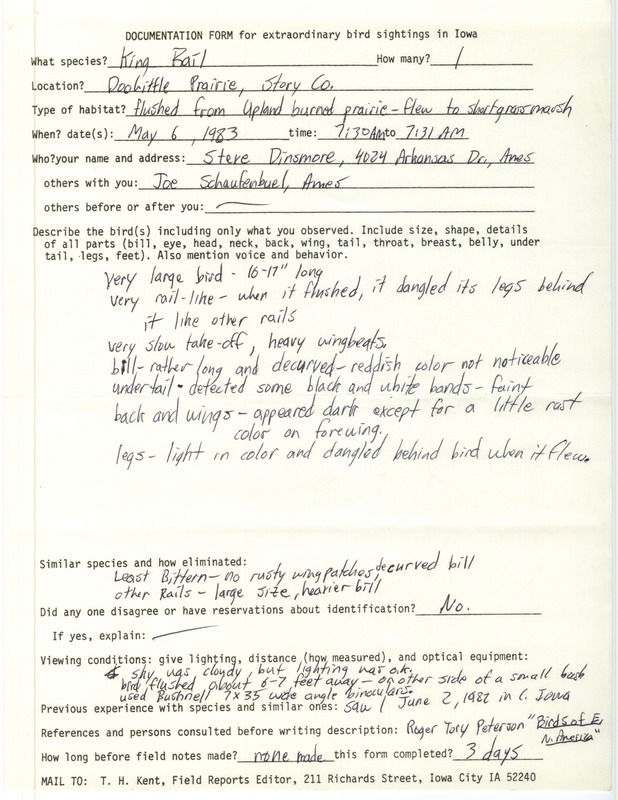 DOCUMENTATION FORM for extraordinary bird sightings in Iowa
What species? King Rail How many? 1
Location? Doolittle Prairie, Story Co.
Type of habitat? flushed from Upland burned prairie - flew to shortgrass marsh
When? date(s): May 6, 1983 time: 7:30 AM to 7:31 AM
Who? your name and address: Steve Dinsmore, 4024 Arkansas Dr., Ames
others with you: Joe Schaufenbuel, Ames
others before or after you: —
Describe the bird(s) including only what you observed. Include size, shape, details
of all parts (bill, eye, head, neck, back, wing, tail, throat, breast, belly, under
tail, legs, feet). Also mention voice and behavior.
very large bird - 16-17" long
very rail-like - when it flushed, it dangled its legs behind
it like other rails
very slow take-off, heavy wingbeats.
bill - rather long and decurved - reddish color not noticeable
undertail - detected some black and white bands - faint
back and wings - appeared dark except for a little rust
color on forewing.
legs - light in color and dangled behind bird when it flew.
Similar species and how eliminated:
Least Bittern - no rusty wing patches, decurved bill
other Rails - large size, heavier bill
Did any one disagree or have reservations about identification? No.
If yes, explain: —
Viewing conditions: give lighting, distance (how measured), and optical equipment:
sky was cloudy but lighting was o.k.
bird flushed about 6-7 feet away - on other side of a small bush
used Bushnell 7x35 wide angle binoculars.
Previous experience with species and similar ones: saw 1 June 2, 1982 in C. Iowa
References and persons consulted before writing description: Roger Tory Peterson "Birds of E.
N. America"
How long before field notes made? none made this form completed? 3 days
MAIL TO: T. H. Kent, Field Reports Editor, 211 Richards Street, Iowa City IA 52240